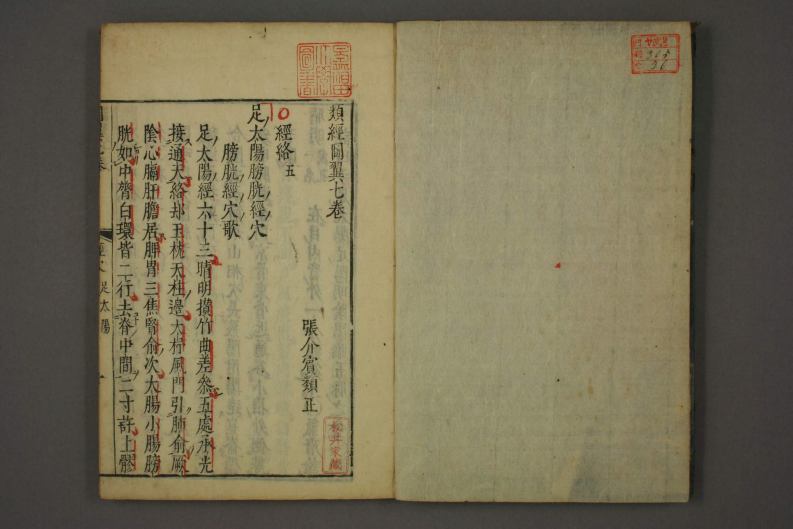 類經圖翼七卷
張介賓類正
經絡 五
足太陽膀胱經穴
膀胱經穴歌
足太陽經六十三睛明攢竹曲差參五處承光
接通天絡却玉枕天柱邊大杼風門引肺俞厥
陰心膈肝膽居脾胃三焦腎俞次大腸小腸膀
胱如中膂白環皆二行去脊中間二寸許上髎
足太陽
松井家藏